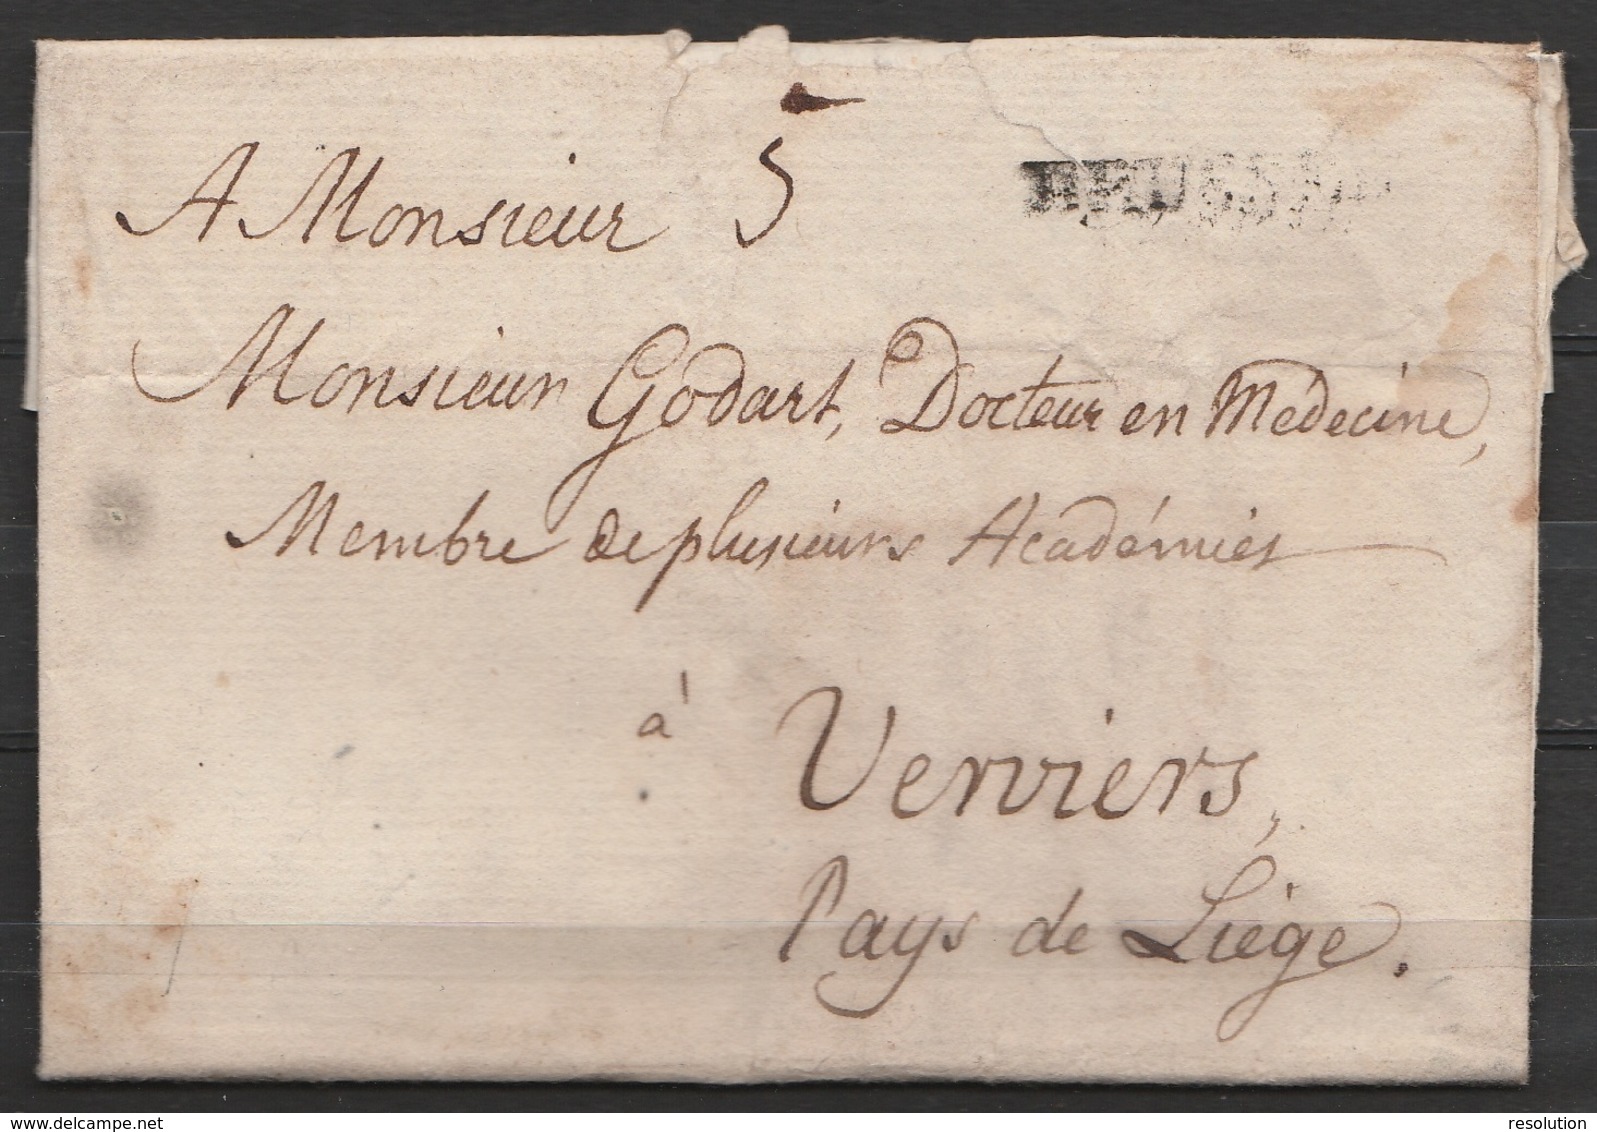 A Monsieur 5
Monsieur Godart, Docteur en Médecine,
Membre de plusieurs Académies
à Verviers,
Pays de Liége.
delcampe.net
resolution